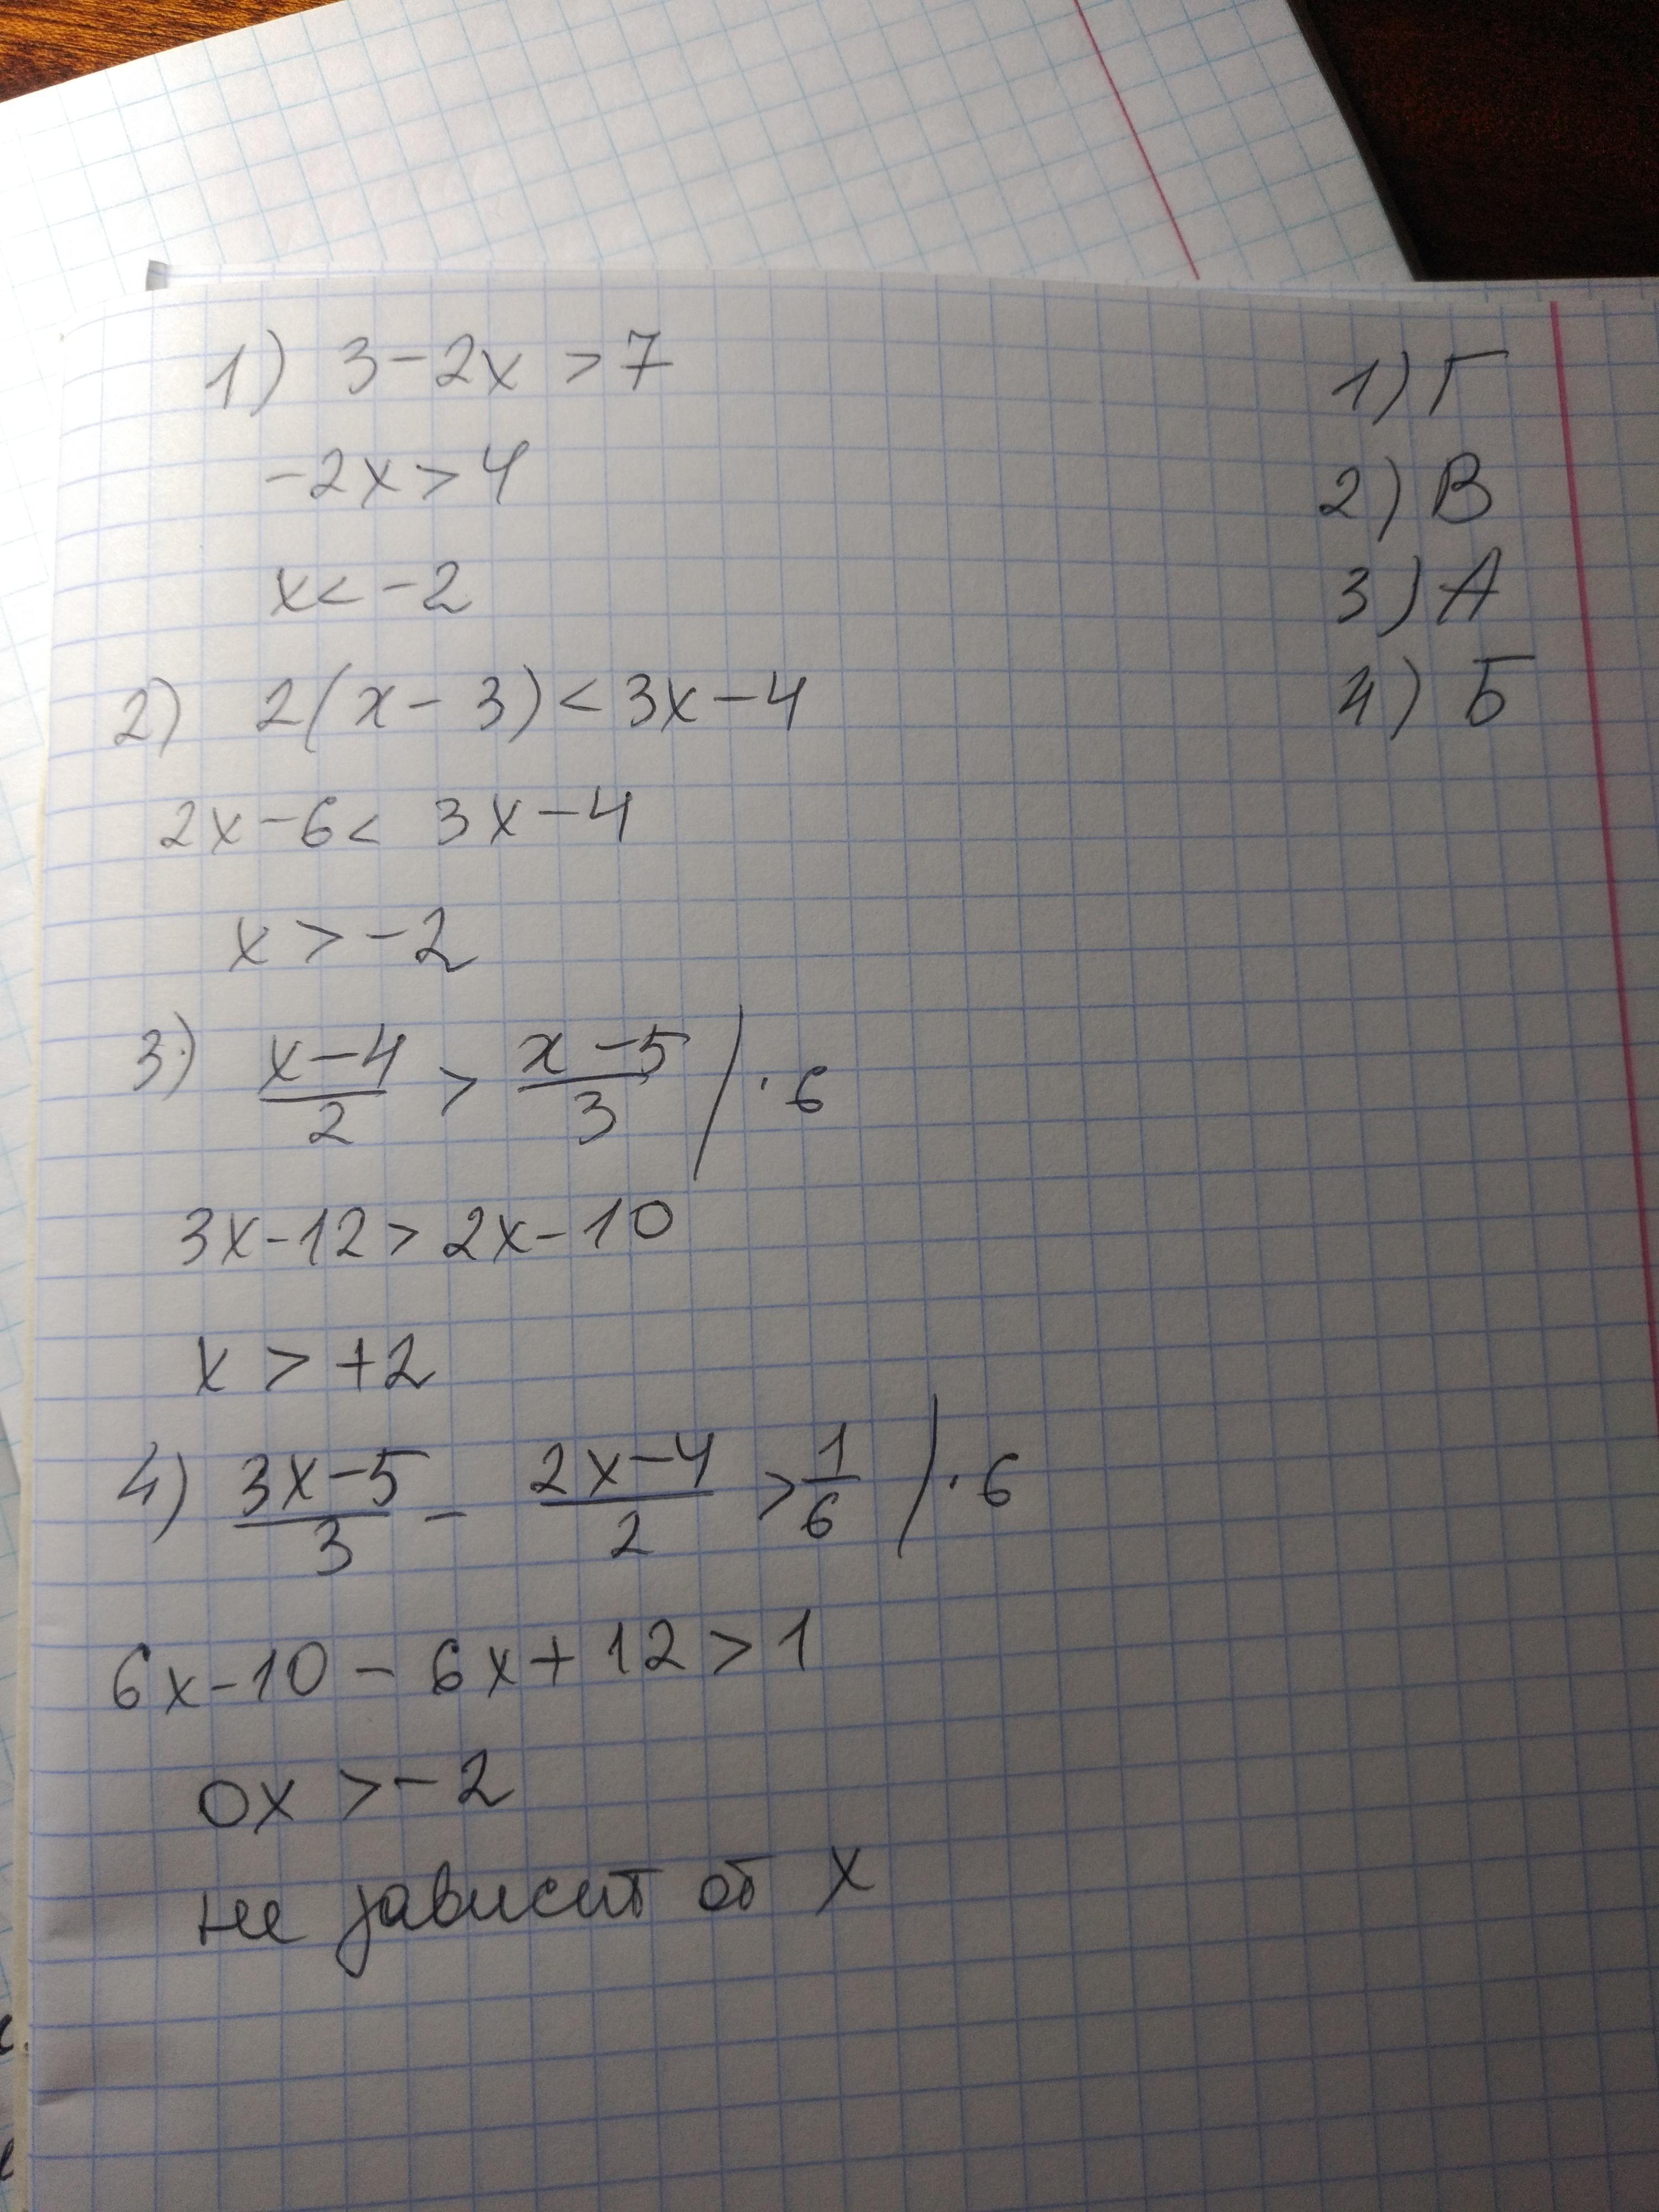 1) 3-2x > 7
-2x > 4
x < -2
2) 2(x-3) < 3x-4
2x-6 < 3x-4
x > -2
3) (x-4)/2 > (x-5)/3 / ·6
3x-12 > 2x-10
x > +2
4) (3x-5)/3 - (2x-4)/2 > 1/6 / ·6
6x-10-6x+12 > 1
0x > -2
не зависит от x
1) Г
2) В
3) А
4) Б